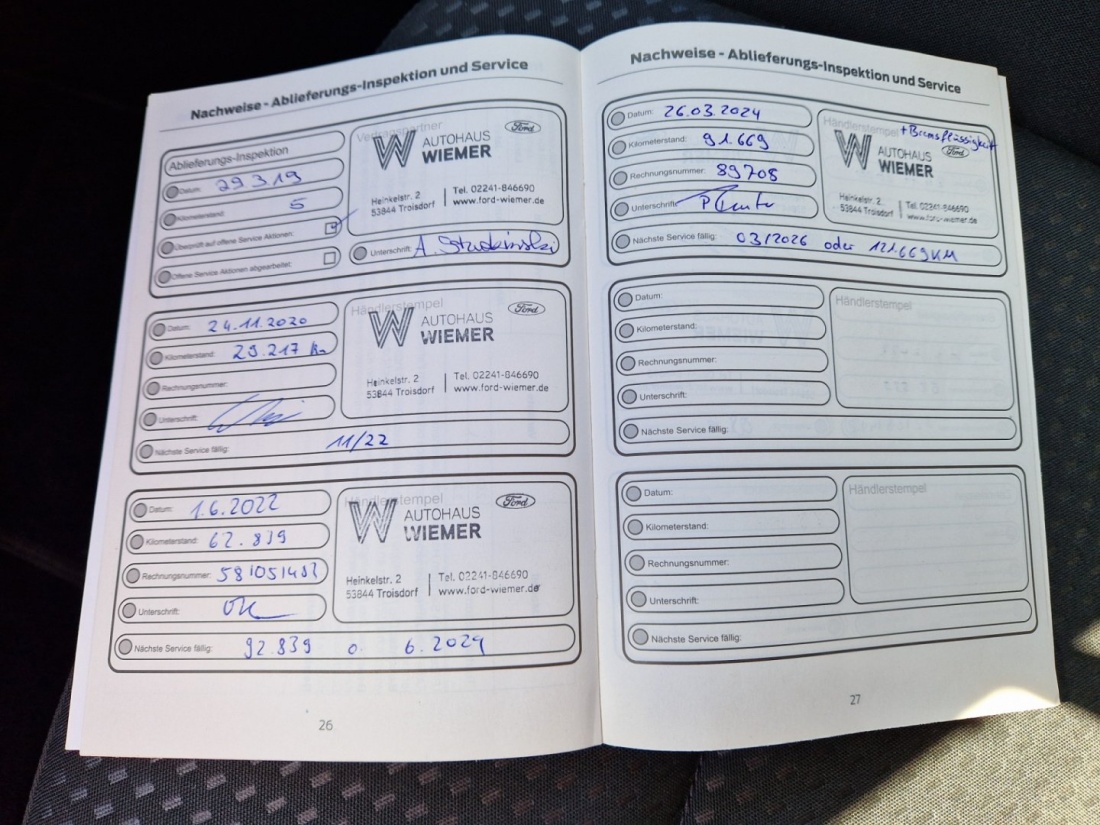 Nachweise - Ablieferungs-Inspektion und Service
Ablieferungs-Inspektion
Datum: 29 3 19
Kilometerstand: 5
Überprüft auf offene Service Aktionen:
Offene Service Aktionen abgearbeitet:
Vertragspartner
Ford
W AUTOHAUS
WIEMER
Heinkelstr. 2
53844 Troisdorf
Tel. 02241-846690
www.ford-wiemer.de
Unterschrift:
Datum: 24.11.2020
Kilometerstand: 29.217 km
Rechnungsnummer:
Unterschrift:
Nächste Service fällig: 11/22
Händlerstempel
Ford
W AUTOHAUS
WIEMER
Heinkelstr. 2
53844 Troisdorf
Tel. 02241-846690
www.ford-wiemer.de
Datum: 1.6.2022
Kilometerstand: 62.839
Rechnungsnummer:
Unterschrift:
Nächste Service fällig: 92.839 o. 6.2024
Händlerstempel
Ford
W AUTOHAUS
WIEMER
Heinkelstr. 2
53844 Troisdorf
Tel. 02241-846690
www.ford-wiemer.de
26
Nachweise - Ablieferungs-Inspektion und Service
Datum: 26.03.2024
Kilometerstand: 91.669
Rechnungsnummer: 89708
Unterschrift:
Nächste Service fällig: 03/2026 oder 121.669 KM
Händlerstempel
+ Bremsflüssigkeit
Ford
W AUTOHAUS
WIEMER
Heinkelstr. 2
53844 Troisdorf
Tel. 02241-846690
www.ford-wiemer.de
Datum:
Kilometerstand:
Rechnungsnummer:
Unterschrift:
Nächste Service fällig:
Händlerstempel
Datum:
Kilometerstand:
Rechnungsnummer:
Unterschrift:
Nächste Service fällig:
Händlerstempel
27